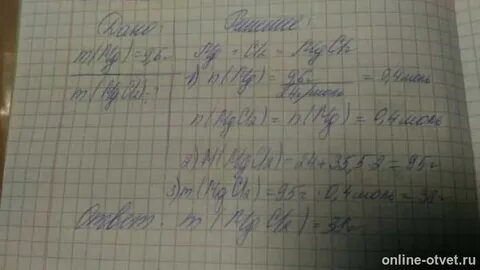 Дано: Решение:
m(Mg)=9,6г Mg + Cl2 = MgCl2
m(MgCl2)-? 1) n(Mg)= 9,6г / 24г/моль = 0,4моль
n(MgCl2)=n(Mg)=0,4моль
2) M(MgCl2)=24+35,5·2=95г
3) m(MgCl2)=95г·0,4моль=38г
Ответ: m(MgCl2)=38г
online-otvet.ru